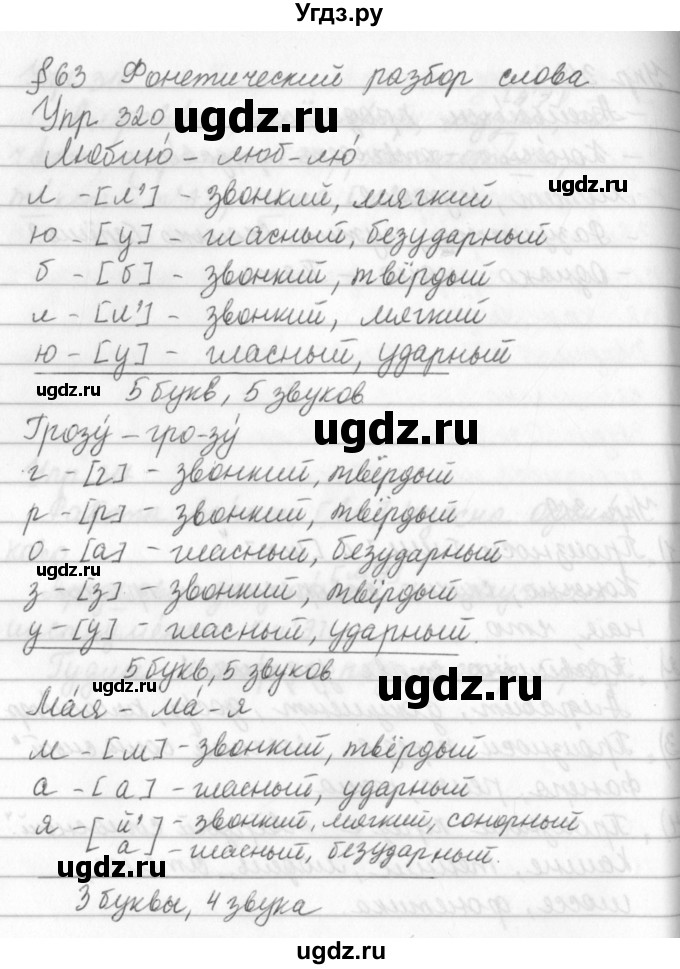 Угдз.ру
§63 Фонетический разбор слова
Упр 320
ugdz.ru
Люблю́ – люб-лю́
ugdz.ru
л – [л'] – звонкий, мягкий
ю – [у] – гласный, безударный
б – [б] – звонкий, твёрдый
л – [л'] – звонкий, мягкий
ю – [у] – гласный, ударный
ugdz.ru
5 букв, 5 звуков
Грозу́ – гро-зу́
ugdz.ru
г – [г] – звонкий, твёрдый
р – [р] – звонкий, твёрдый
о – [а] – гласный, безударный
ugdz.ru
з – [з] – звонкий, твёрдый
у – [у] – гласный, ударный.
5 букв, 5 звуков
ugdz.ru
ugdz.ru
Ма́я – ма́-я
м – [м] – звонкий, твёрдый
а – [а] – гласный, ударный
я – [й' – звонкий, мягкий, сонорный
а] – гласный, безударный.
ugdz.ru
ugdz.ru
3 буквы, 4 звука
ugdz.ru